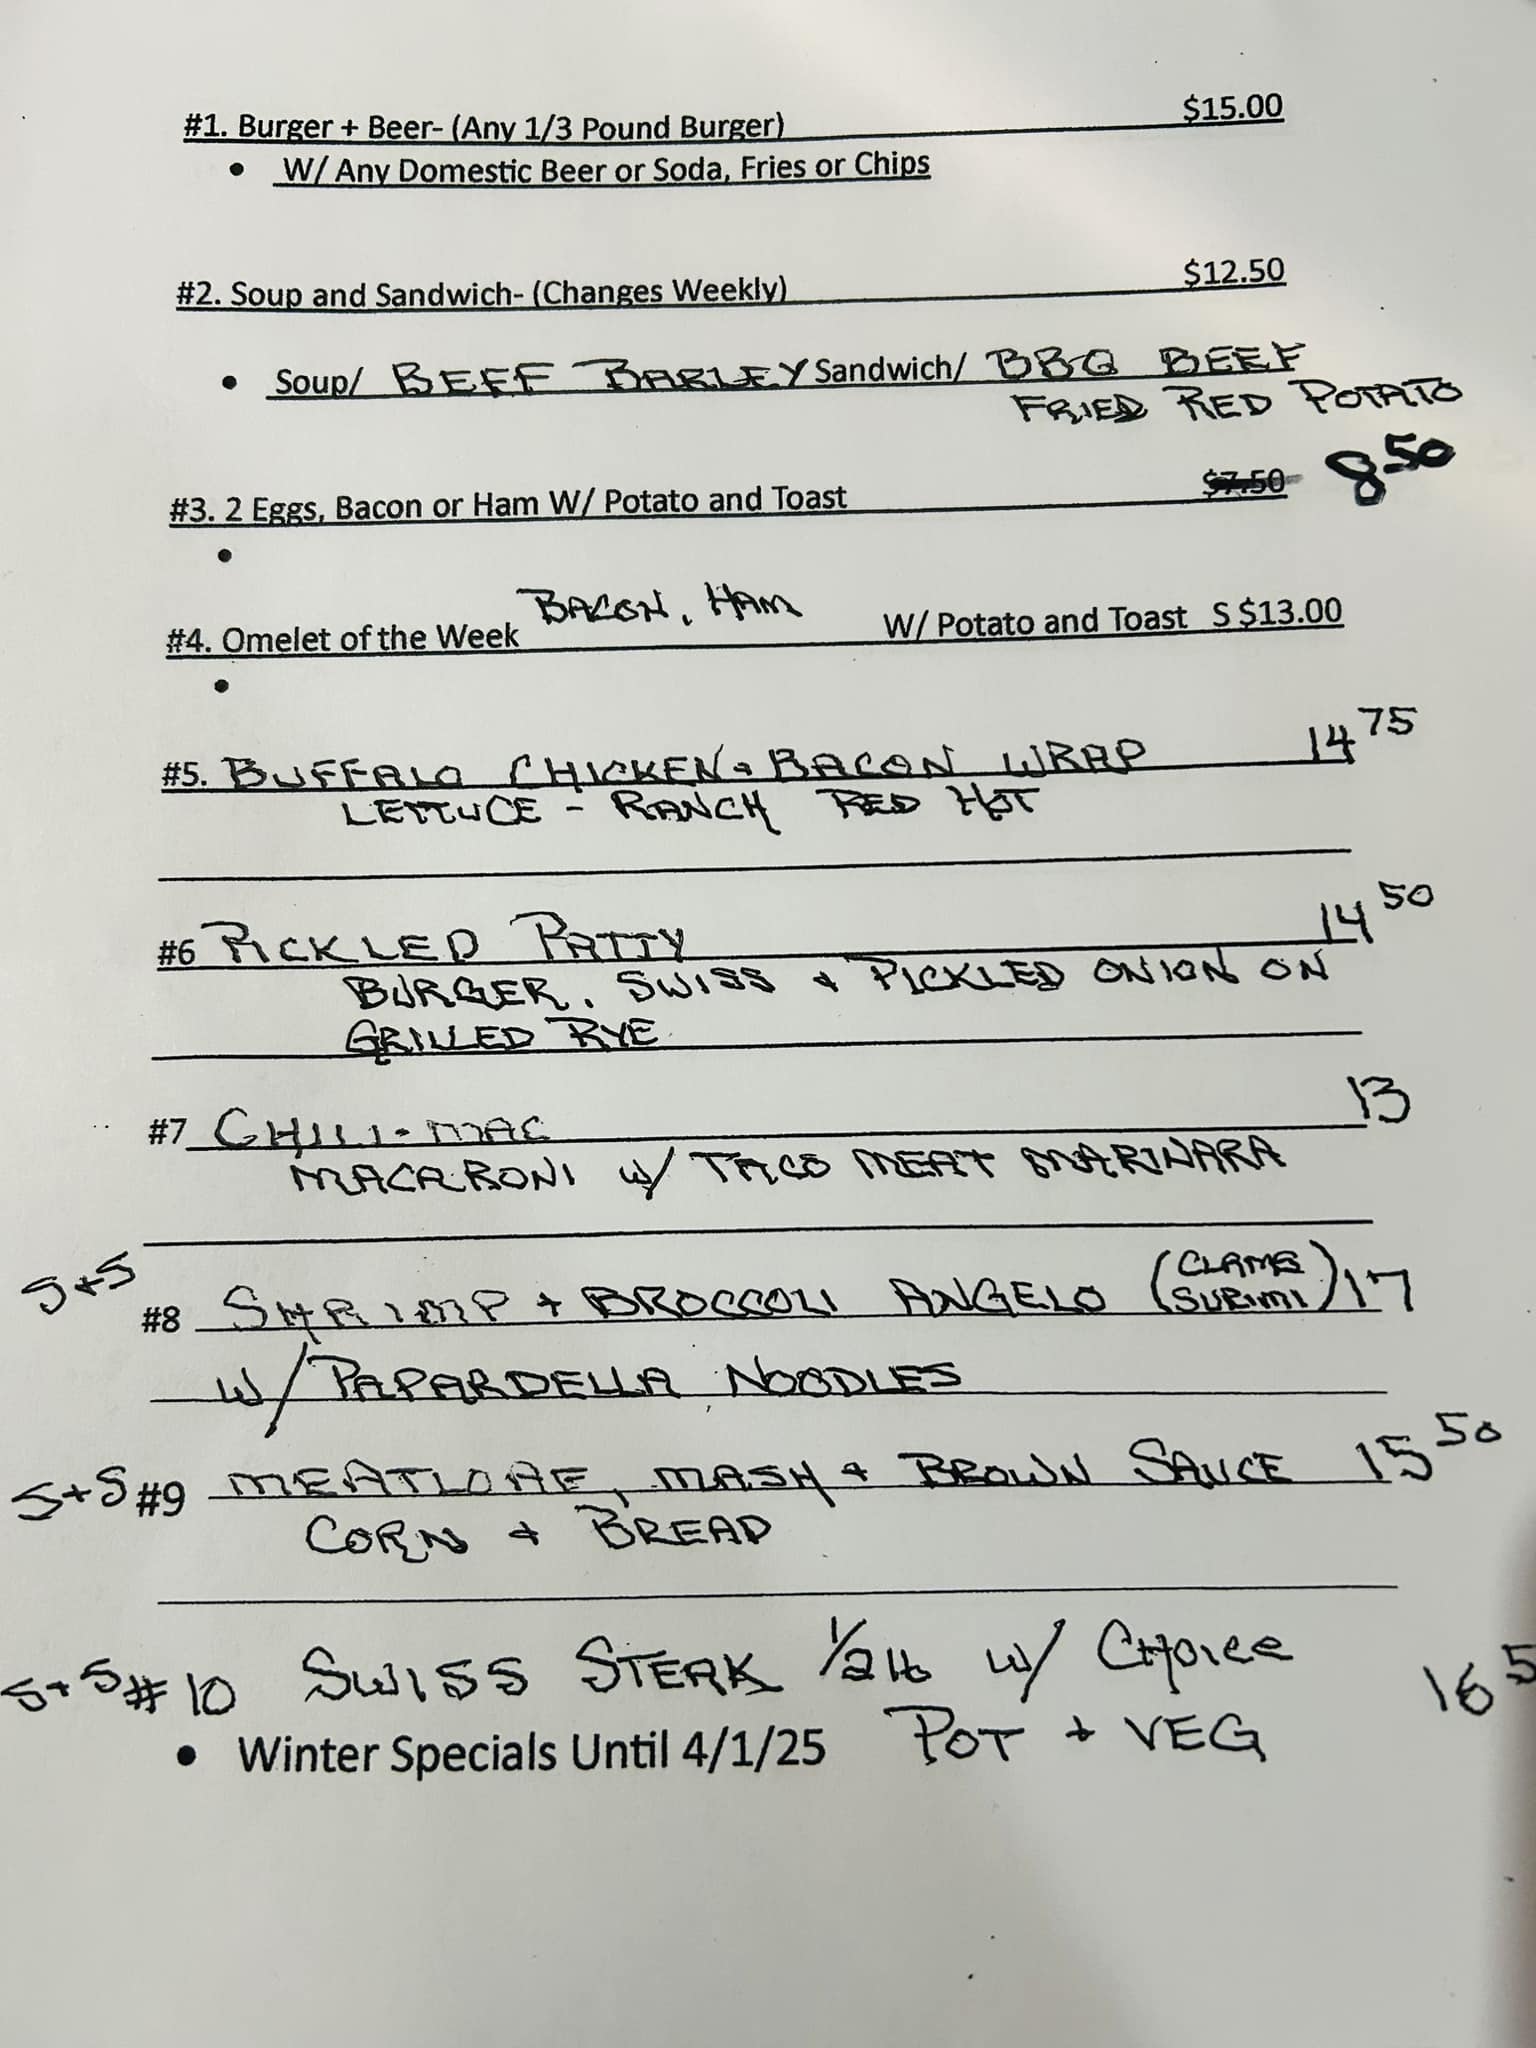 #1. Burger + Beer- (Any 1/3 Pound Burger) $15.00
• W/ Any Domestic Beer or Soda, Fries or Chips
#2. Soup and Sandwich- (Changes Weekly) $12.50
• Soup/ BEEF BARLEY Sandwich/ BBQ BEEF
FRIED RED POTATO
#3. 2 Eggs, Bacon or Ham W/ Potato and Toast $7.50 8.50
•
BACON, HAM
#4. Omelet of the Week W/ Potato and Toast S $13.00
•
#5. BUFFALO CHICKEN & BACON WRAP 14 75
LETTUCE - RANCH RED HOT
#6 PICKLED PATTY 14 50
BURGER, SWISS & PICKLED ONION ON
GRILLED RYE
#7 CHILI-MAC 13
MACARONI W/ TACO MEAT MARINARA
S+S #8 SHRIMP + BROCCOLI ANGELO (CLAMS SURIMI) 17
W/ PAPARDELLA NOODLES
S+S #9 MEATLOAF, MASH & BROWN SAUCE 15 50
CORN & BREAD
S+S #10 SWISS STEAK 1/2 lb W/ CHOICE 16 5
• Winter Specials Until 4/1/25 POT + VEG